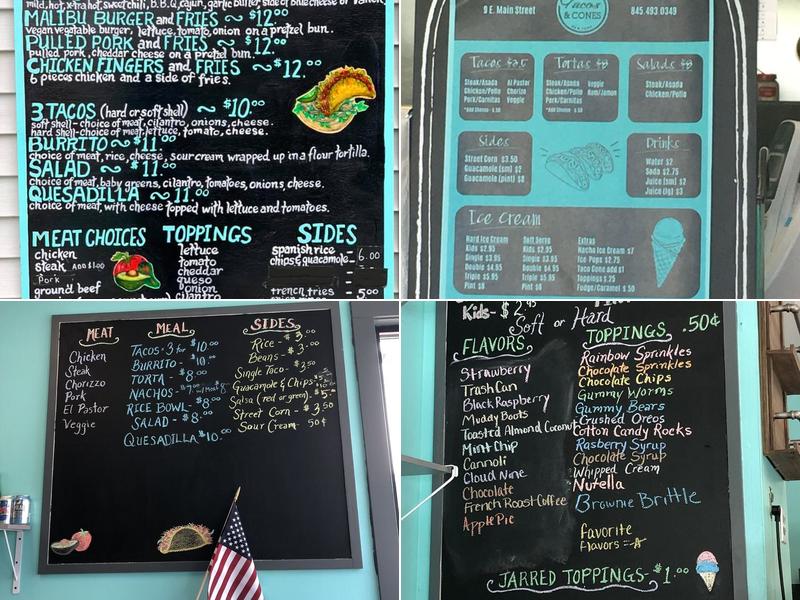 mild, hot, xtra hot, sweet chili, B.B.Q, cajun, garlic butter side of blue cheese or ranch
MALIBU BURGER and FRIES ~ $12.00
vegan vegetable burger, lettuce, tomato, onion on a pretzel bun.
PULLED PORK and FRIES ~ $12.00
pulled pork, cheddar cheese on a pretzel bun.
CHICKEN FINGERS and FRIES ~ $12.00
6 pieces chicken and a side of fries.
3 TACOS (hard or soft shell) ~ $10.00
soft shell - choice of meat, cilantro, onions, cheese.
hard shell - choice of meat, lettuce, tomato, cheese.
BURRITO ~ $11.00
choice of meat, rice, cheese, sour cream wrapped up in a flour tortilla.
SALAD ~ $11.00
choice of meat, baby greens, cilantro, tomatoes, onions, cheese.
QUESADILLA ~ 11.00
choice of meat, with cheese topped with lettuce and tomatoes.
MEAT CHOICES
chicken
steak ADD $1.00
Pork
ground beef
TOPPINGS
lettuce
tomato
cheddar
queso
onion
cilantro
SIDES
spanish rice
chips & guacamole 6.00
french fries 5.00
9 E. Main Street
Tacos
& CONES
845.493.0349
Tacos $3.5
Steak/Asada
Chicken/Pollo
Pork/Carnitas
Al Pastor
Chorizo
Veggie
*Add Cheese $.50
Tortas $9
Steak/Asada
Chicken/Pollo
Pork/Carnitas
Veggie
Ham/Jamon
*Add Cheese $.50
Salads $9
Steak/Asada
Chicken/Pollo
Sides
Street Corn $3.50
Guacamole (sm) $2
Guacamole (pint) $8
Drinks
Water $2
Soda $2.75
Juice (sm) $2
Juice (lg) $3
Ice Cream
Hard Ice Cream
Kids $2.95
Single $3.95
Double $4.95
Triple $5.95
Pint $6
Soft Serve
Kids $2.95
Single $3.95
Double $4.95
Triple $5.95
Pint $6
Extras
Nacho Ice Cream $7
Ice Pops $2.75
Taco Cone add $1
Toppings $.75
Fudge/Caramel $.50
MEAT
Chicken
Steak
Chorizzo
Pork
El Pastor
Veggie
MEAL
TACOS - 3 for $10.00
BURRITO - $10.00
TORTA - $8.00
NACHOS - $7.00
RICE BOWL - $8.00
SALAD - $8.00
QUESADILLA $10.00
SIDES
Rice - $3.00
Beans - $3.00
Single Taco - $3.50
Guacamole & Chips
Salsa (red or green)
Street Corn - $3.50
Sour Cream - 50¢
Kids - $2.95
Soft or Hard
FLAVORS
Strawberry
Trash Can
Black Raspberry
Muddy Boots
Toasted Almond Coconut
Mint Chip
Cannoli
Cloud Nine
Chocolate
French Roast Coffee
Apple Pie
TOPPINGS .50¢
Rainbow Sprinkles
Chocolate Sprinkles
Chocolate Chips
Gummy Worms
Gummy Bears
Crushed Oreos
Cotton Candy Rocks
Rasberry Syrup
Chocolate Syrup
Whipped Cream
Nutella
Brownie Brittle
favorite
flavors
JARRED TOPPINGS - $1.00